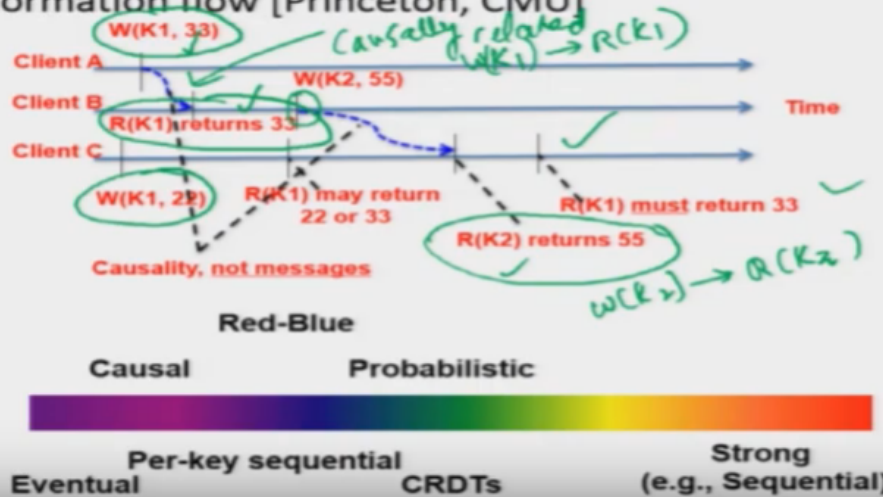 formation flow [Princeton, CMU]
W(K1, 33)
Causally related
W(K1) → R(K1)
Client A
W(K2, 55)
Client B
Time
R(K1) returns 33
Client C
W(K1, 22)
R(K1) may return
22 or 33
R(K1) must return 33
R(K2) returns 55
W(K2) → R(K2)
Causality, not messages
Red-Blue
Causal
Probabilistic
Per-key sequential
Strong
Eventual
CRDTs
(e.g., Sequential)